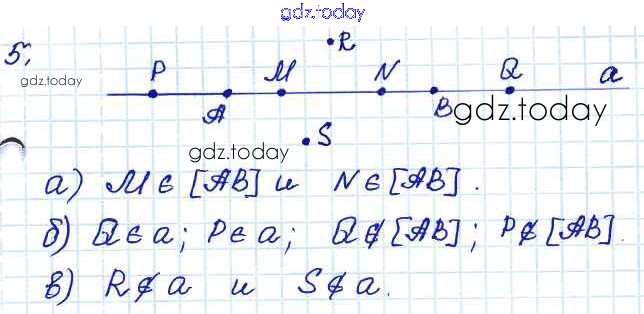 gdz.today
5.
• R
gdz.today
P M N Q a
A B gdz.today
• S
gdz.today
а) M ∈ [AB] и N ∈ [AB].
б) Q ∈ a; P ∈ a; Q ∉ [AB]; P ∉ [AB]
в) R ∉ a и S ∉ a.